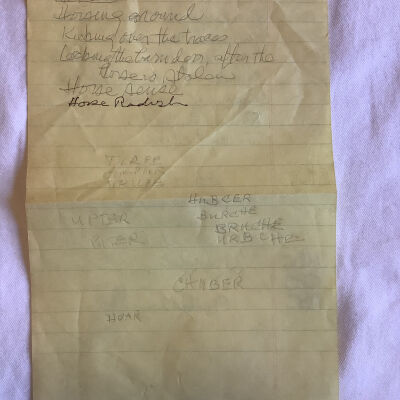 Horsing around
Kicking over the traces
Locking the barn door, after the
Horse is stolen
Horse sense
Horse Radish
UPTER
HUBCER
BURCHE
BRUCHE
URBCHE
CHUBER
HOAR